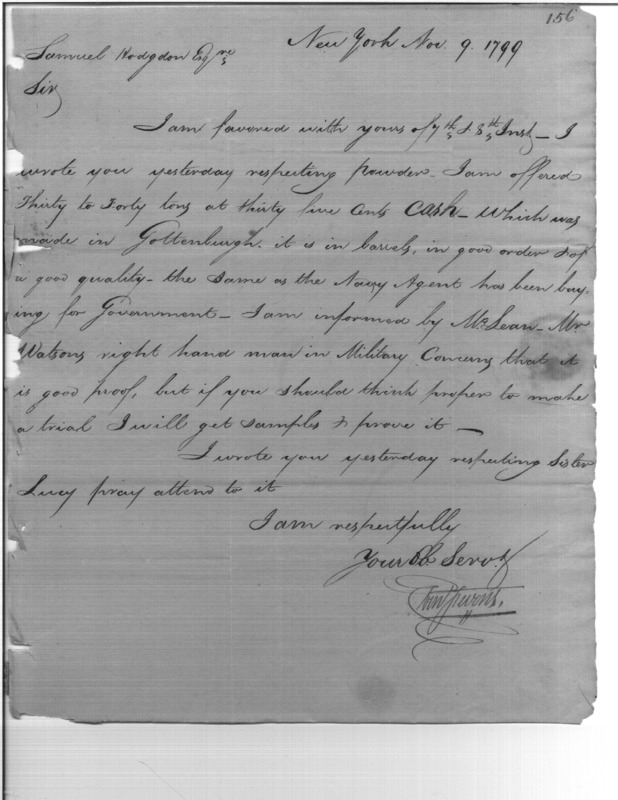 156
New York Nov. 9. 1799
Samuel Hodgdon Esqre
Sir
I am favored with yours of 7th & 8th Inst – I
wrote you yesterday respecting Powder – I am offered
Thirty to Forty tons at thirty five Cents Cash – which was
made in Gottenburgh. it is in barels, in good order & of
a good quality – the same as the Navy Agent has been buy-
ing for Government – I am informed by McLean – Mr
Watsons right hand man in Military Concerns that it
is good proof, but if you should think proper to make
a trial I will get samples & prove it –
I wrote you yesterday respecting Sister
Lucy pray attend to it
I am respectfully
Your Ob. Servt
Stevens